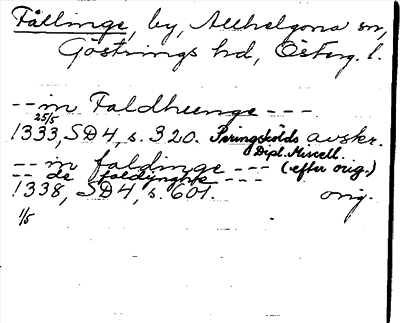 Fällinge, by, Allhelgona sn,
Göstrings hd, Österg. l.
-- in Faldhunge ---
25/5
1333, SD 4, s. 320. Peringskölds avskr.
Dipl. Miscell.
-- in faldinge --- (efter orig.)
-- de
1338, SD 4, s. 601. orig.
1/5